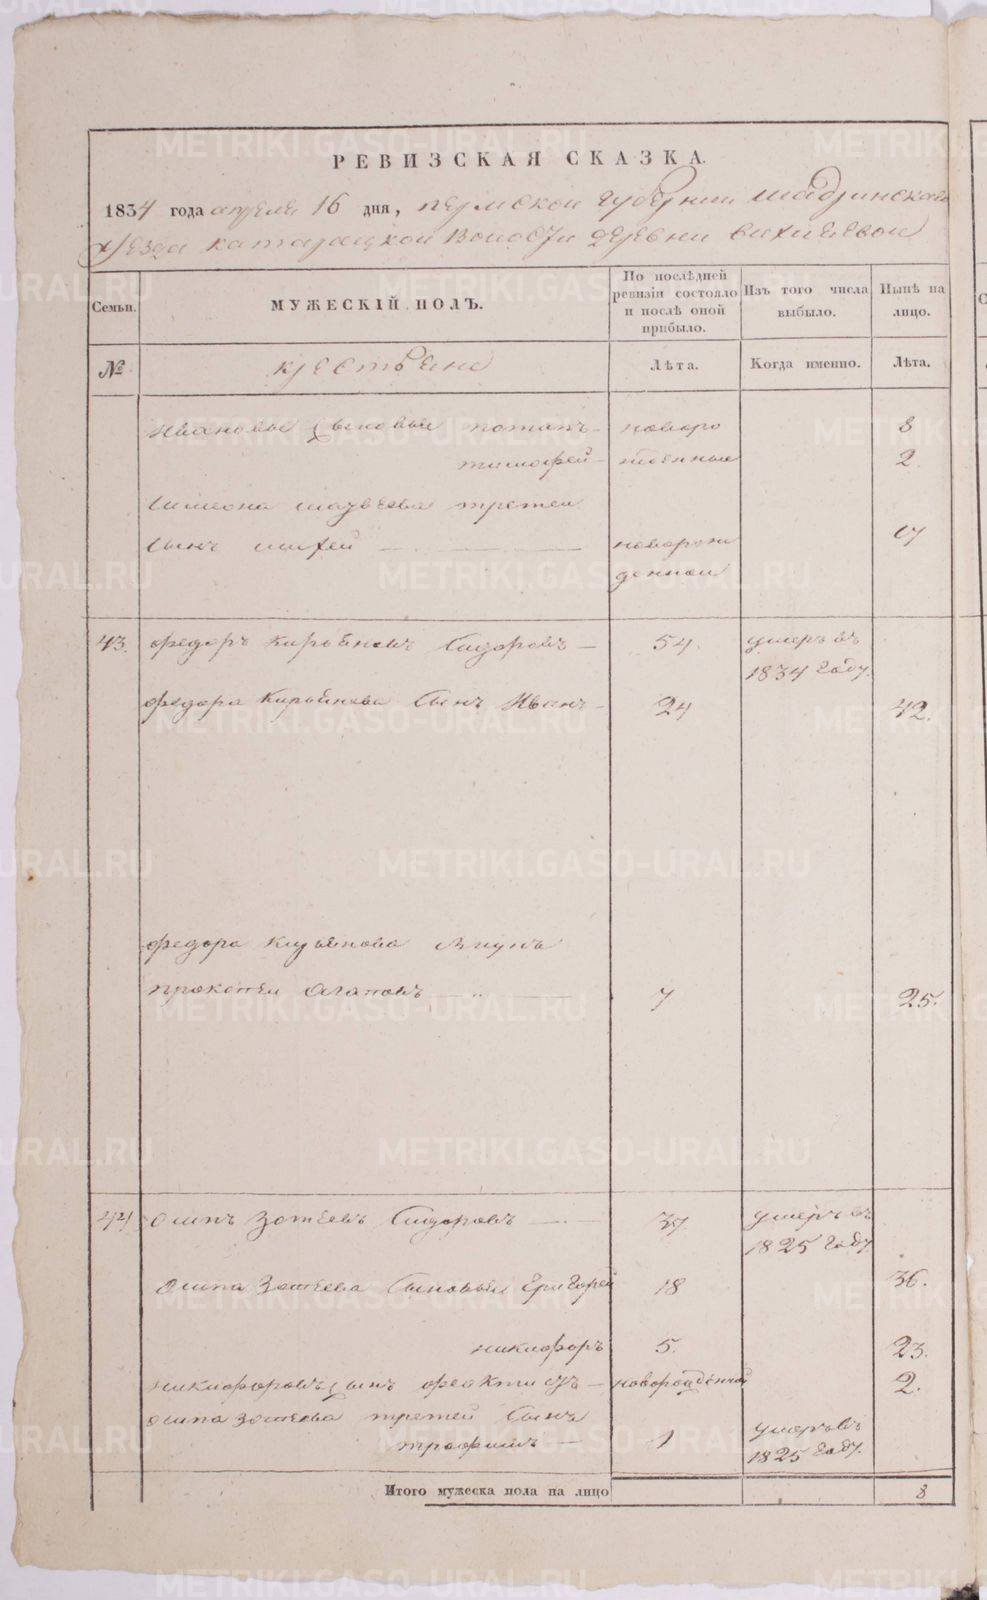 РЕВИЗСКАЯ СКАЗКА.
1834 года апреля 16 дня, пермской губернии шадринскаго
уезда катарацкой волости деревни
Семьи.
МУЖЕСКІЙ ПОЛЪ.
По послѣдней ревизіи состояло и послѣ оной прибыло.
Изъ того числа выбыло.
Нынѣ на лицо.
№
крестьяне
Лѣта.
Когда именно.
Лѣта.
Ивановы сыновья потапъ - новоро 8
тимофей - жденныя 2.
третей
сынъ михей новорож 17
денной
43. федоръ Кирьяновъ Сидоровъ - 54. умеръ въ
1834 году.
федора Кирьянова Сынъ Иванъ - 24 42.
федора Кирьянова внукъ
прокопеи Агаповъ 7 25.
44. осипъ Зотѣевъ Сидоровъ 37. умеръ въ
1825 году
осипа Зотеева Сыновья Григорей 18 36.
никифоръ 5. 23.
никифоровъ сынъ феоктистъ - новорожденной 2.
осипа зотеева третей Сынъ
трофимъ - 1 умеръ въ
1825 году.
Итого мужеска пола на лицо 8
METRIKI.GASO-URAL.RU